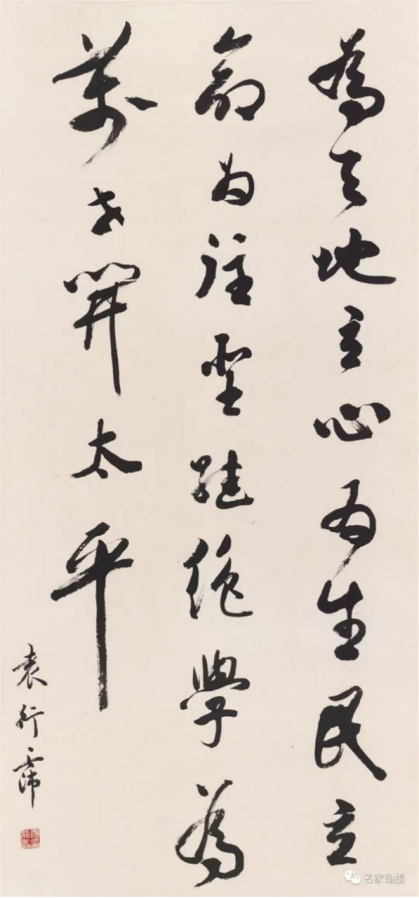 為天地立心為生民立
命為往聖繼絕學為
萬世開太平
袁行霈
名家翰墨